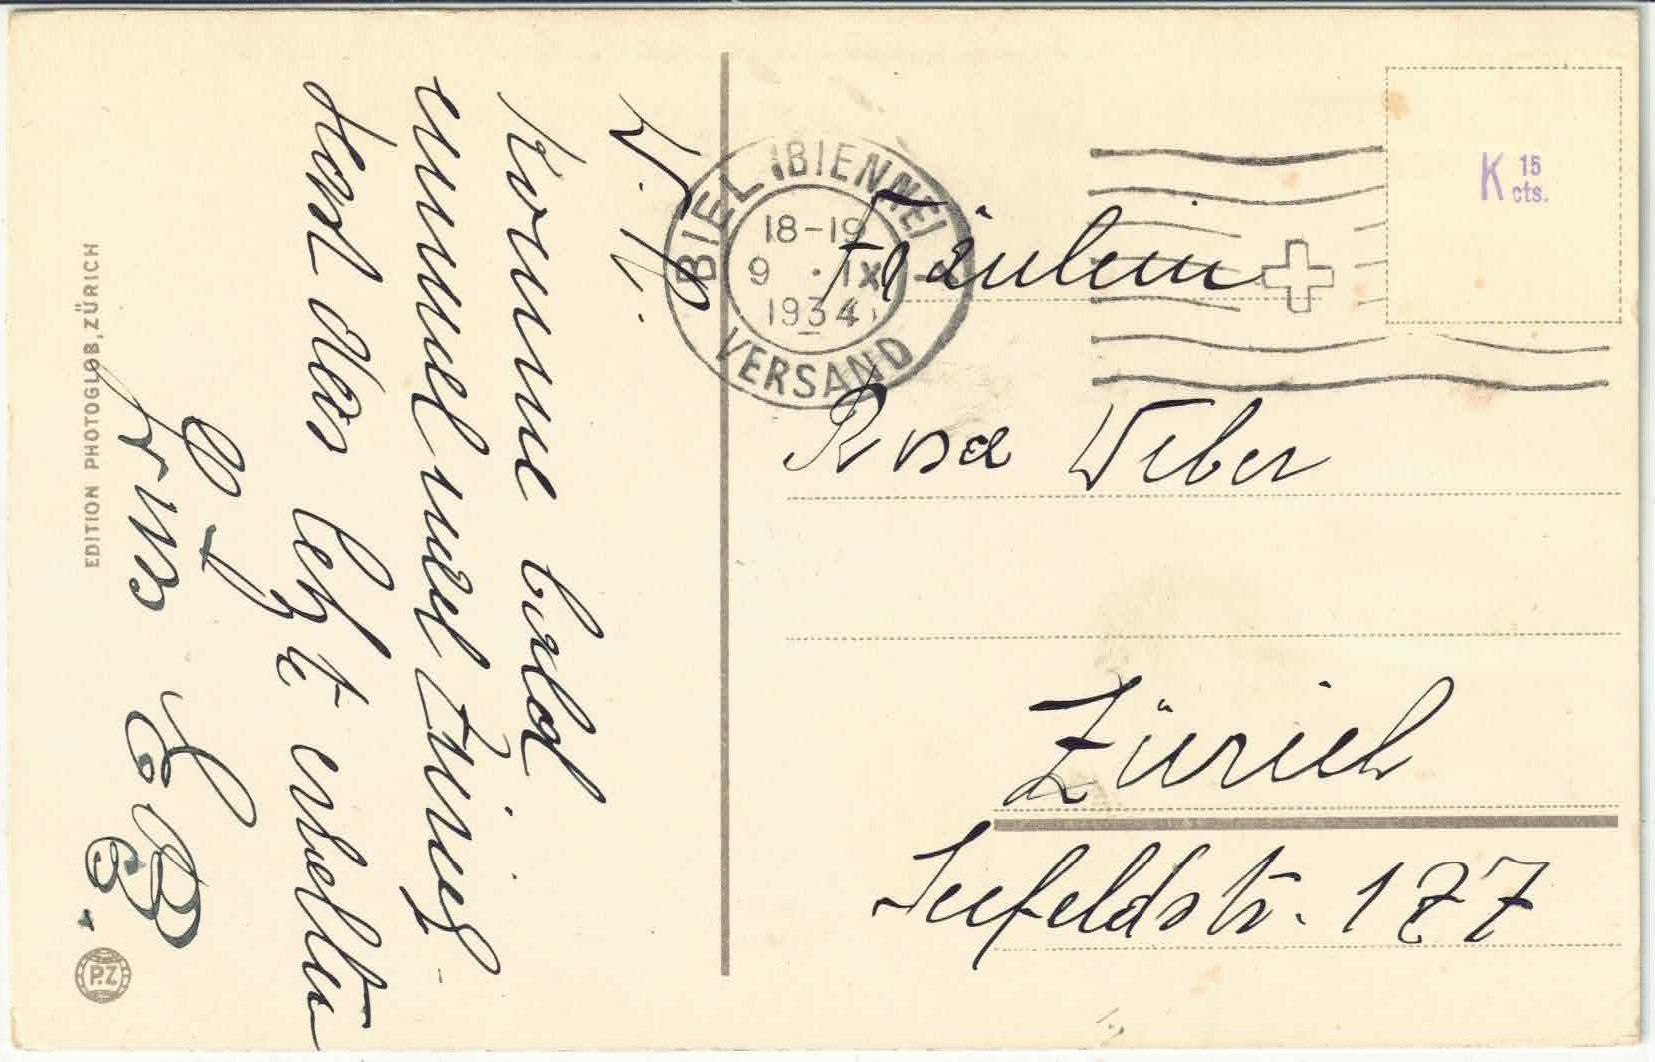 EDITION PHOTOGLOB, ZÜRICH
P.Z
Komme bald
einmal nach Zürich.
Hast das letzte erhalten
Gruss
BIEL (BIENNE)
18-19
9. IX
1934
VERSAND
K 15 cts.
Fräulein
Rosa Weber
Zürich
Seefeldstr. 177